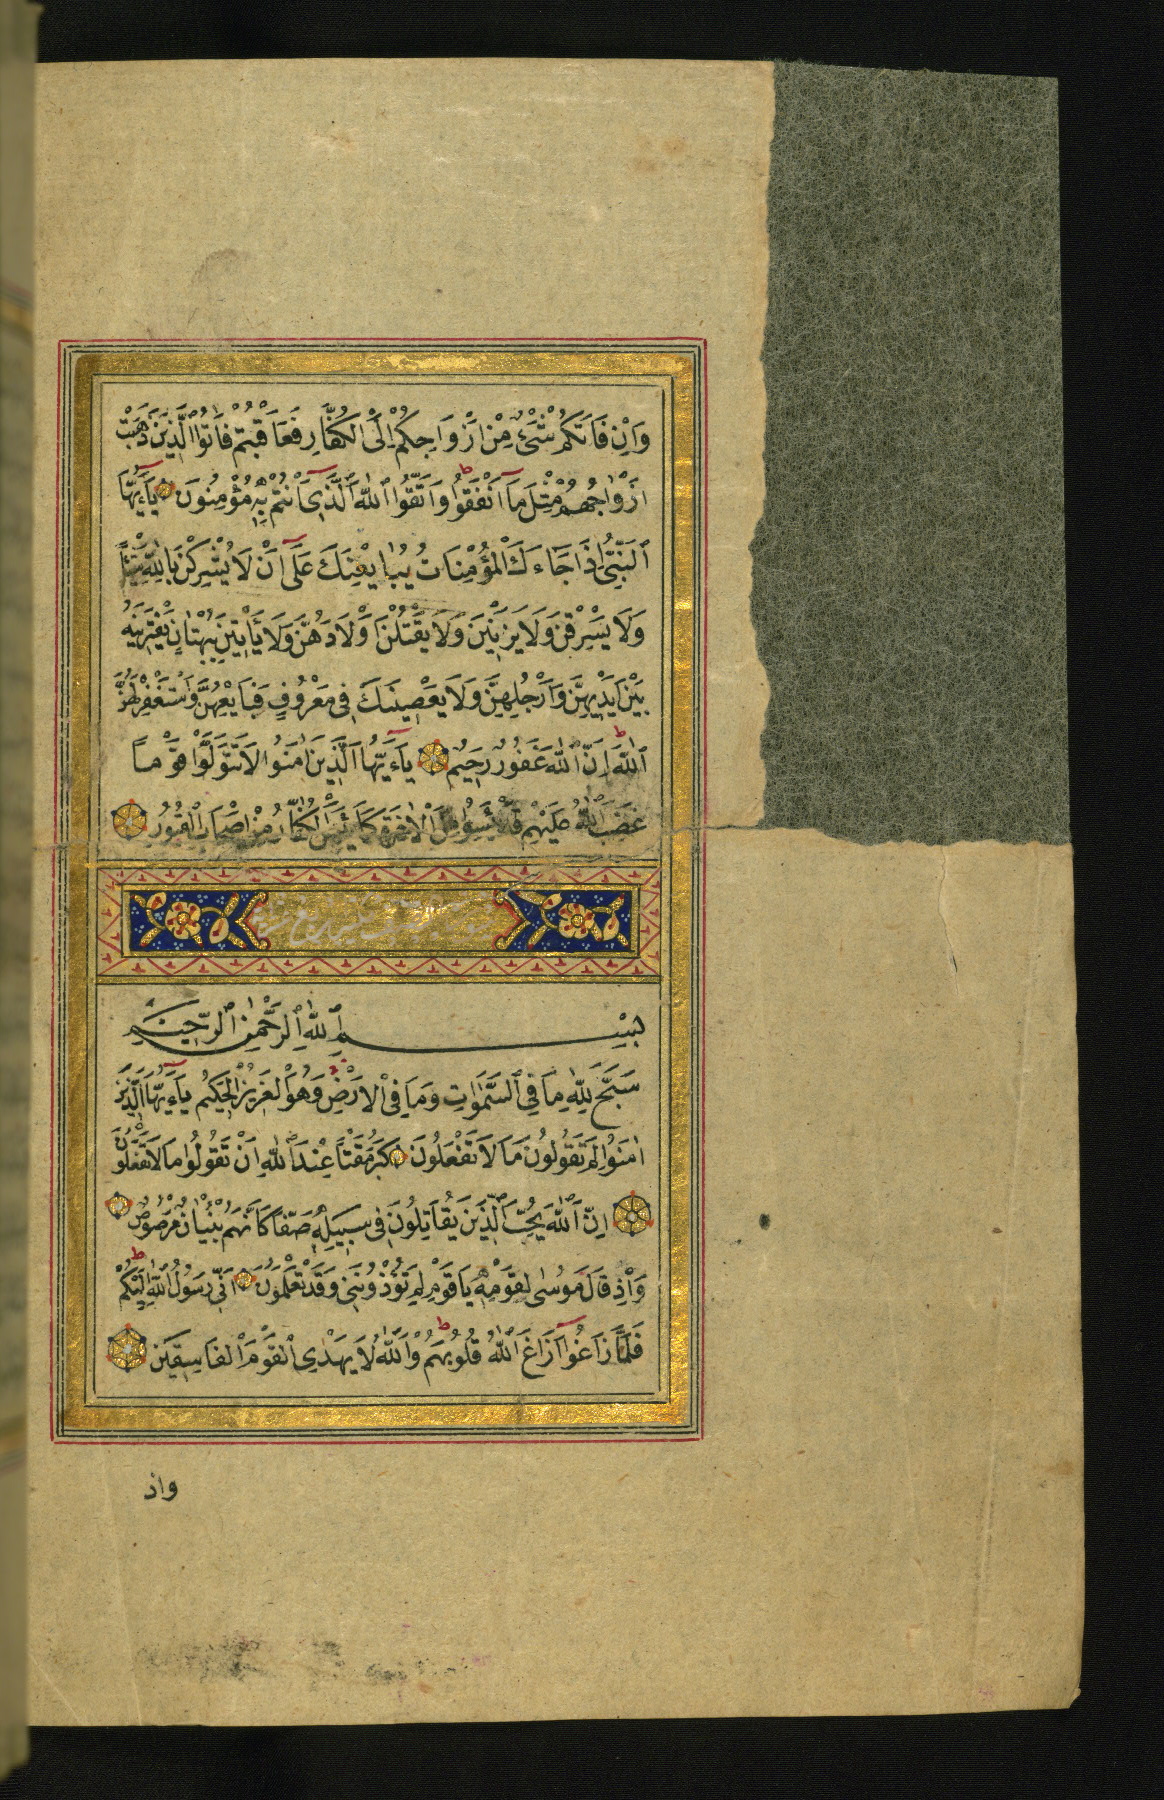 وَاِنْ فَاتَكُمْ شَىْءٌ مِنْ اَزْوَاجِكُمْ اِلَى الْكُفَّارِ فَعَاقَبْتُمْ فَاٰتُوا الَّذِينَ ذَهَبَتْ
اَزْوَاجُهُمْ مِثْلَ مَٓا اَنْفَقُوا ط وَاتَّقُوا اللّٰهَ الَّذِٓى اَنْتُمْ بِهِ مُؤْمِنُونَ يَٓا اَيُّهَا
النَّبِىُّ اِذَا جَاءَكَ الْمُؤْمِنَاتُ يُبَايِعْنَكَ عَلٰٓى اَنْ لَا يُشْرِكْنَ بِاللّٰهِ شَيْئًا
وَلَا يَسْرِقْنَ وَلَا يَزْنِينَ وَلَا يَقْتُلْنَ اَوْلَادَهُنَّ وَلَا يَأْتِينَ بِبُهْتَانٍ يَفْتَرِينَهُ
بَيْنَ اَيْدِيهِنَّ وَاَرْجُلِهِنَّ وَلَا يَعْصِينَكَ فِى مَعْرُوفٍ فَبَايِعْهُنَّ وَاسْتَغْفِرْ لَهُنَّ
اللّٰهَ ط اِنَّ اللّٰهَ غَفُورٌ رَحِيمٌ يَٓا اَيُّهَا الَّذِينَ اٰمَنُوا لَا تَتَوَلَّوْا قَوْمًا
غَضِبَ اللّٰهُ عَلَيْهِمْ قَدْ يَئِسُوا مِنَ الْاٰخِرَةِ كَمَا يَئِسَ الْكُفَّارُ مِنْ اَصْحَابِ الْقُبُورِ
بِسْمِ اللّٰهِ الرَّحْمٰنِ الرَّحِيمِ
سَبَّحَ لِلّٰهِ مَا فِى السَّمٰوَاتِ وَمَا فِى الْاَرْضِ وَهُوَ الْعَزِيزُ الْحَكِيمُ يَٓا اَيُّهَا الَّذِينَ
اٰمَنُوا لِمَ تَقُولُونَ مَا لَا تَفْعَلُونَ كَبُرَ مَقْتًا عِنْدَ اللّٰهِ اَنْ تَقُولُوا مَا لَا تَفْعَلُونَ
اِنَّ اللّٰهَ يُحِبُّ الَّذِينَ يُقَاتِلُونَ فِى سَبِيلِهِ صَفًّا كَاَنَّهُمْ بُنْيَانٌ مَرْصُوصٌ
وَاِذْ قَالَ مُوسٰى لِقَوْمِهِ يَا قَوْمِ لِمَ تُؤْذُونَنِى وَقَدْ تَعْلَمُونَ اَنِّى رَسُولُ اللّٰهِ اِلَيْكُمْ ط
فَلَمَّا زَاغُٓوا اَزَاغَ اللّٰهُ قُلُوبَهُمْ ط وَاللّٰهُ لَا يَهْدِى الْقَوْمَ الْفَاسِقِينَ
واذ